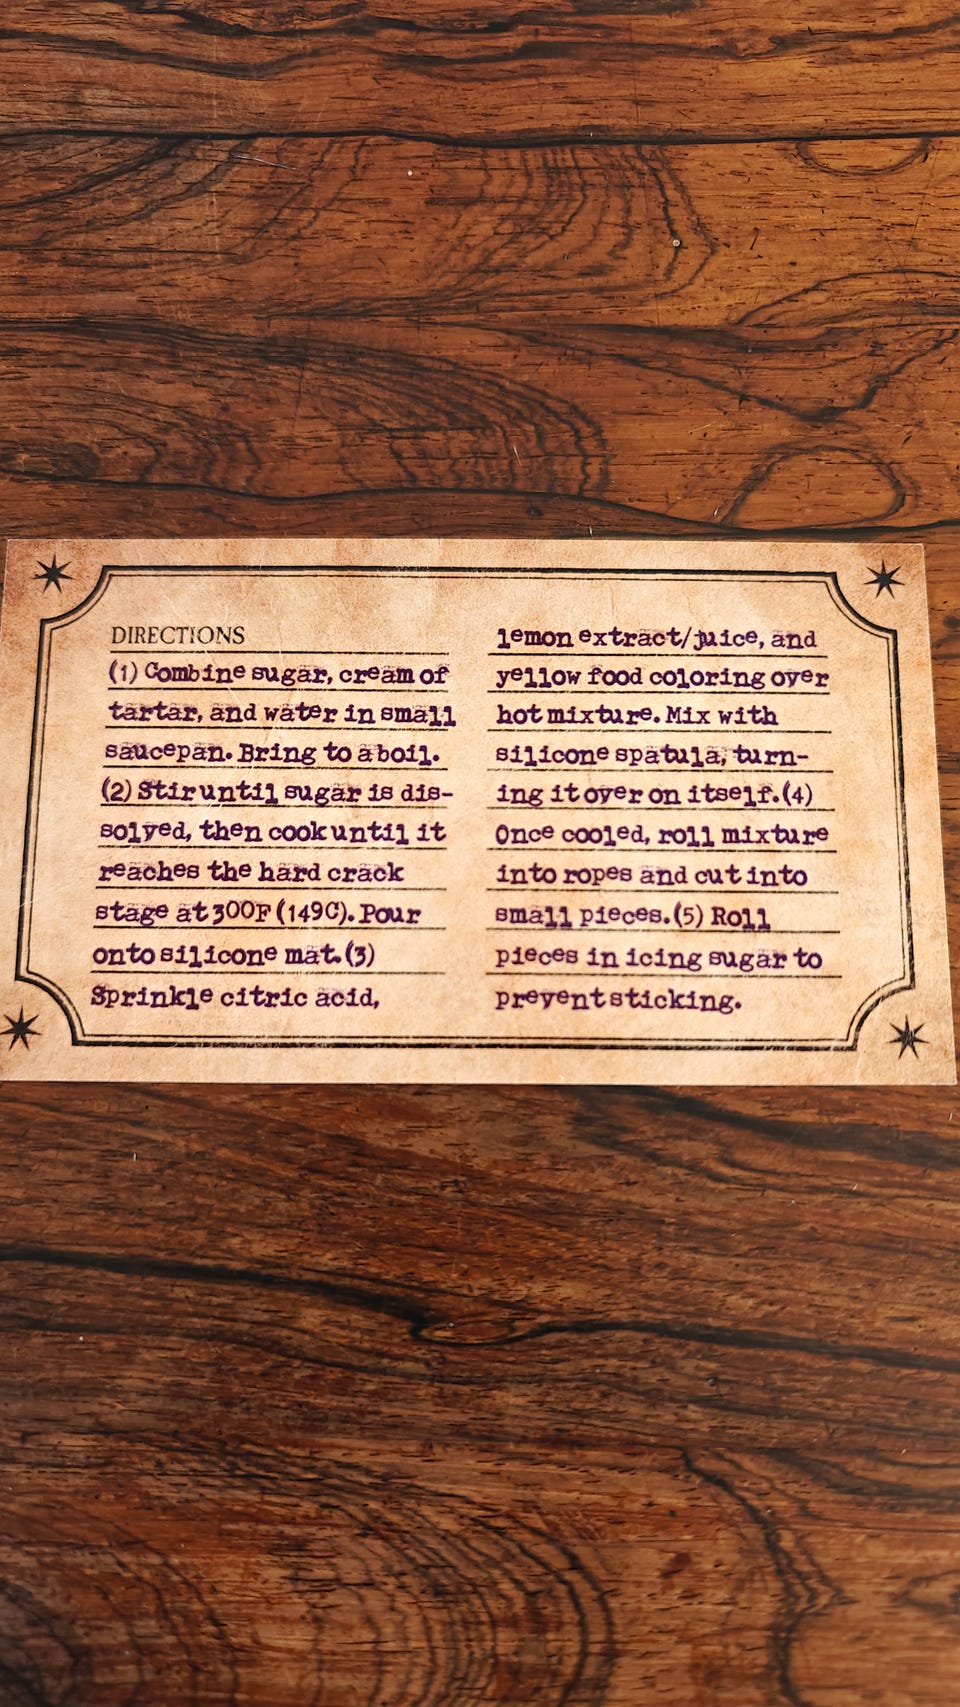 DIRECTIONS
(1) Combine sugar, cream of
tartar, and water in small
saucepan. Bring to a boil.
(2) Stir until sugar is dis-
solved, then cook until it
reaches the hard crack
stage at 300F (149C). Pour
onto silicone mat. (3)
Sprinkle citric acid,
lemon extract/juice, and
yellow food coloring over
hot mixture. Mix with
silicone spatula, turn-
ing it over on itself. (4)
Once cooled, roll mixture
into ropes and cut into
small pieces. (5) Roll
pieces in icing sugar to
prevent sticking.